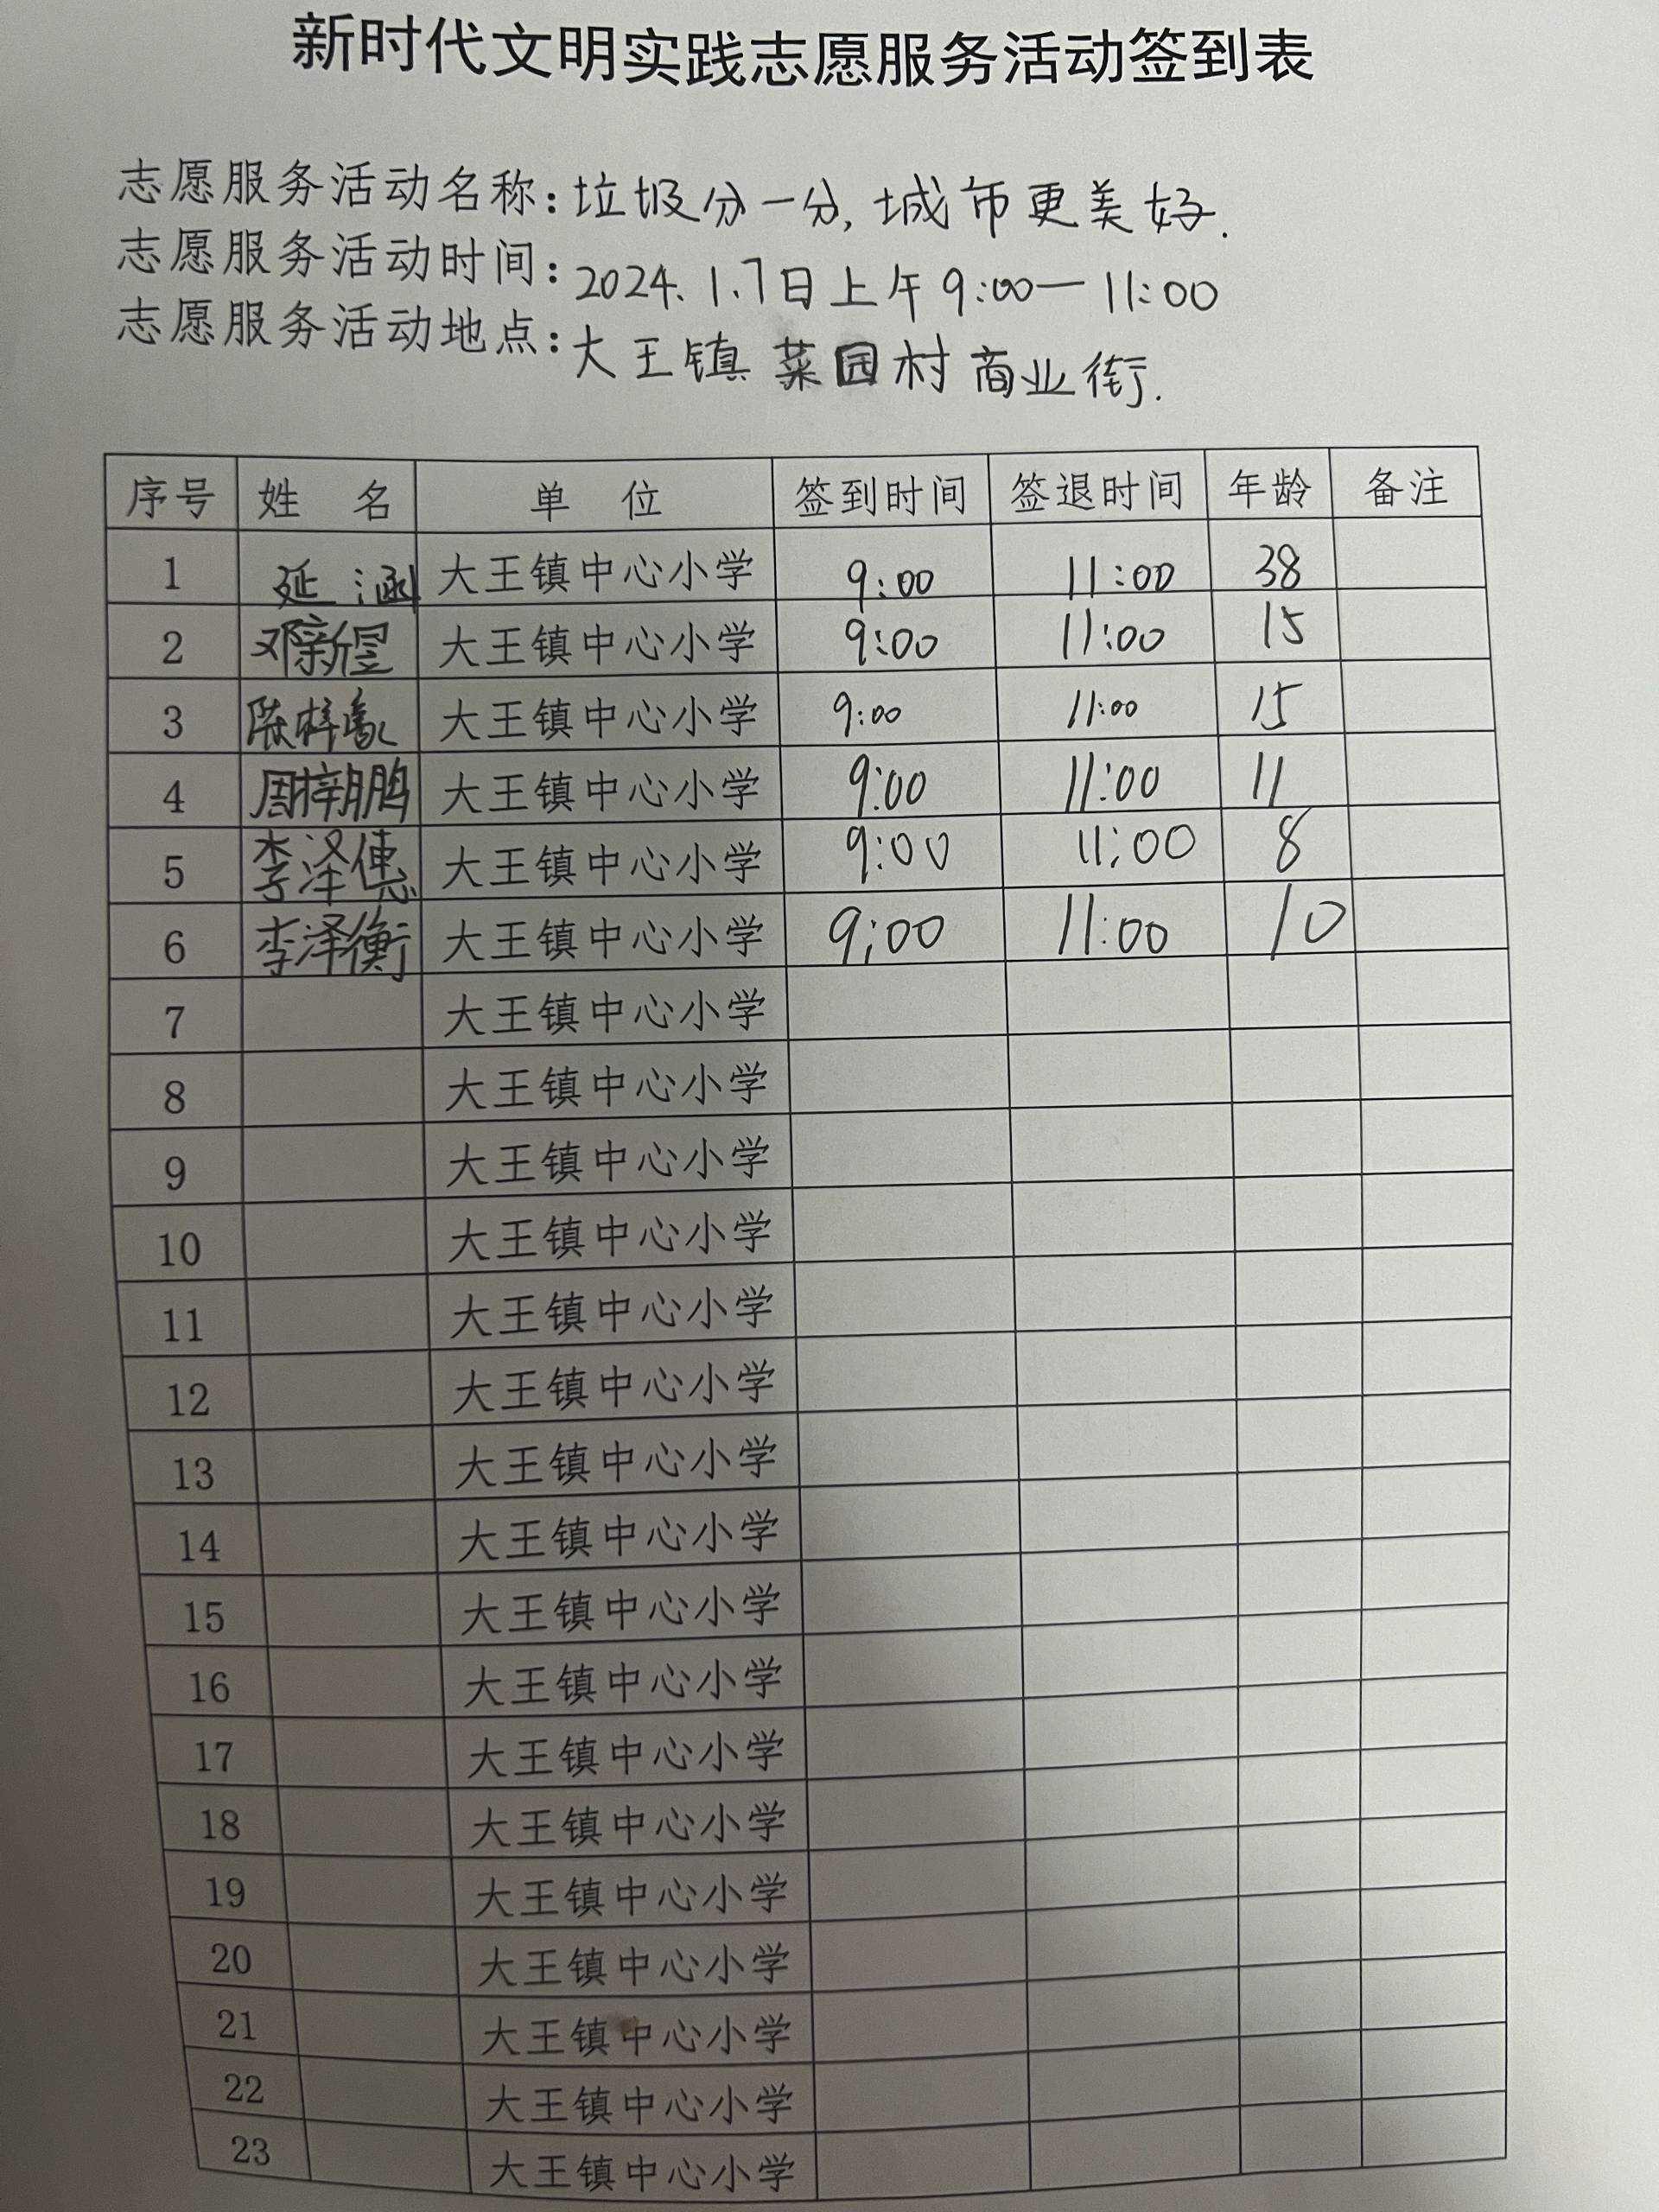 新时代文明实践志愿服务活动签到表
志愿服务活动名称:垃圾分一分,城市更美好.
志愿服务活动时间:2024.1.7日上午9:00—11:00
志愿服务活动地点:大王镇菜园村商业街.
序号 姓 名 单 位 签到时间 签退时间 年龄 备注
1 延涵 大王镇中心小学 9:00 11:00 38
2 邓新昱 大王镇中心小学 9:00 11:00 15
3 陈梓 大王镇中心小学 9:00 11:00 15
4 周梓鹏 大王镇中心小学 9:00 11:00 11
5 李泽 大王镇中心小学 9:00 11:00 8
6 李泽衡 大王镇中心小学 9:00 11:00 10
7 大王镇中心小学
8 大王镇中心小学
9 大王镇中心小学
10 大王镇中心小学
11 大王镇中心小学
12 大王镇中心小学
13 大王镇中心小学
14 大王镇中心小学
15 大王镇中心小学
16 大王镇中心小学
17 大王镇中心小学
18 大王镇中心小学
19 大王镇中心小学
20 大王镇中心小学
21 大王镇中心小学
22 大王镇中心小学
23 大王镇中心小学